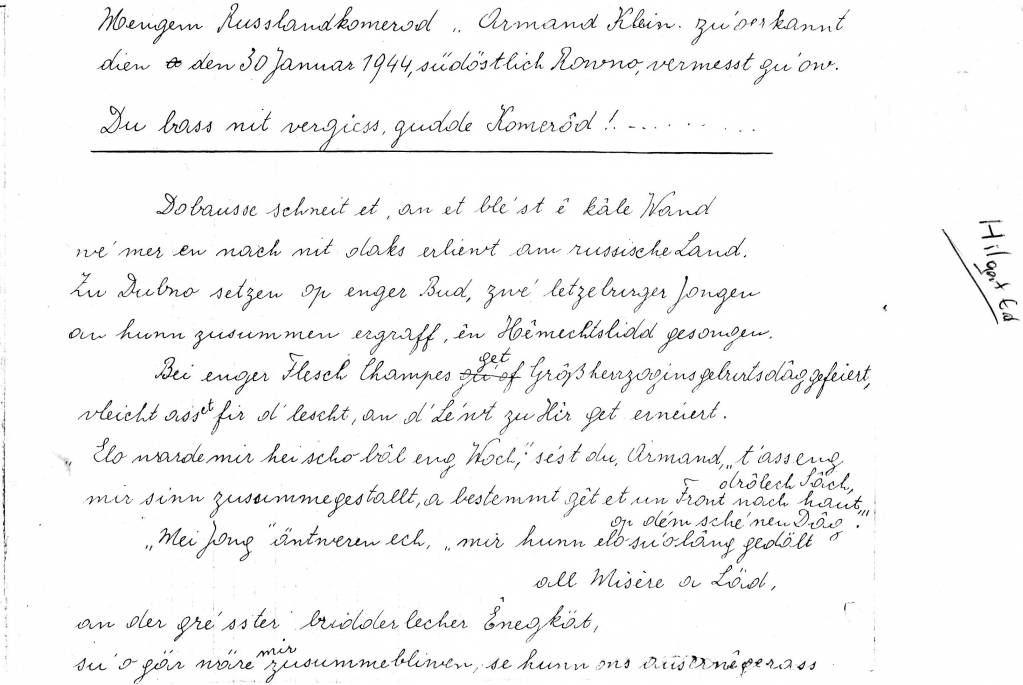 Mengem Russlandkomerod „ Armand Klein. zu'oerkannt
dien den 30 Januar 1944, südöstlich Rowno, vermesst gu'ow.
Du bass nit vergiess, gudde Komerôd !. . . . . . . . .
Dobausse schneit et, an et ble'st ê kâle Wand
we' mer en nach nit daks erliewt am russische Land.
Zu Dubno setzen op enger Bud, zwé letzeburger Jongen
an hunn zusummen ergraff, ên Hêmechtslidd gesongen.
Bei enger Flesch Champes get Größherrzoginsgeburtsdâg gefeiert,
vleicht ass et fir d'lescht, an d'Le'wt zu Hir get erneiert.
„Elo wardemir hei scho bâl eng Woch," sést du, Armand, „t'ass eng drôlech Sâch,
mir sinn zusummegestallt, a bestemmt gêt et un Front nach haut, op dém sche'nen Dâg."
„Mei Jong" äntweren ech, „mir hunn elo su'olâng gedölt
all Misère a Läd,
an der gre'sster bridderlecher Ênegkät,
su'o gär wäre mir zusummebliwen, se hunn ons
Hilgert Ed